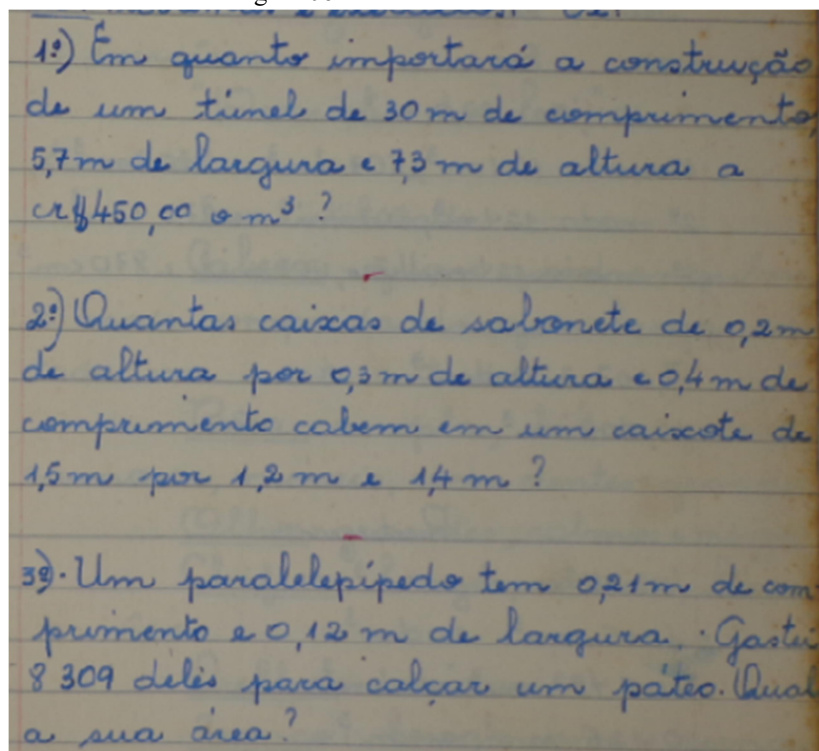 1º) Em quanto importará a construção
de um túnel de 30 m de comprimento,
5,7m de largura e 7,3 m de altura a
cr$450,00 o m³ ?
2º) Quantas caixas de sabonete de 0,2m
de altura por 0,3m de altura e 0,4m de
comprimento cabem em um caixote de
1,5m por 1,2 m e 1,4 m ?
3º). Um paralelepípedo tem 0,21m de com
primento e 0,12 m de largura. Gastei
8 309 deles para calçar um páteo. Qual
a sua área?